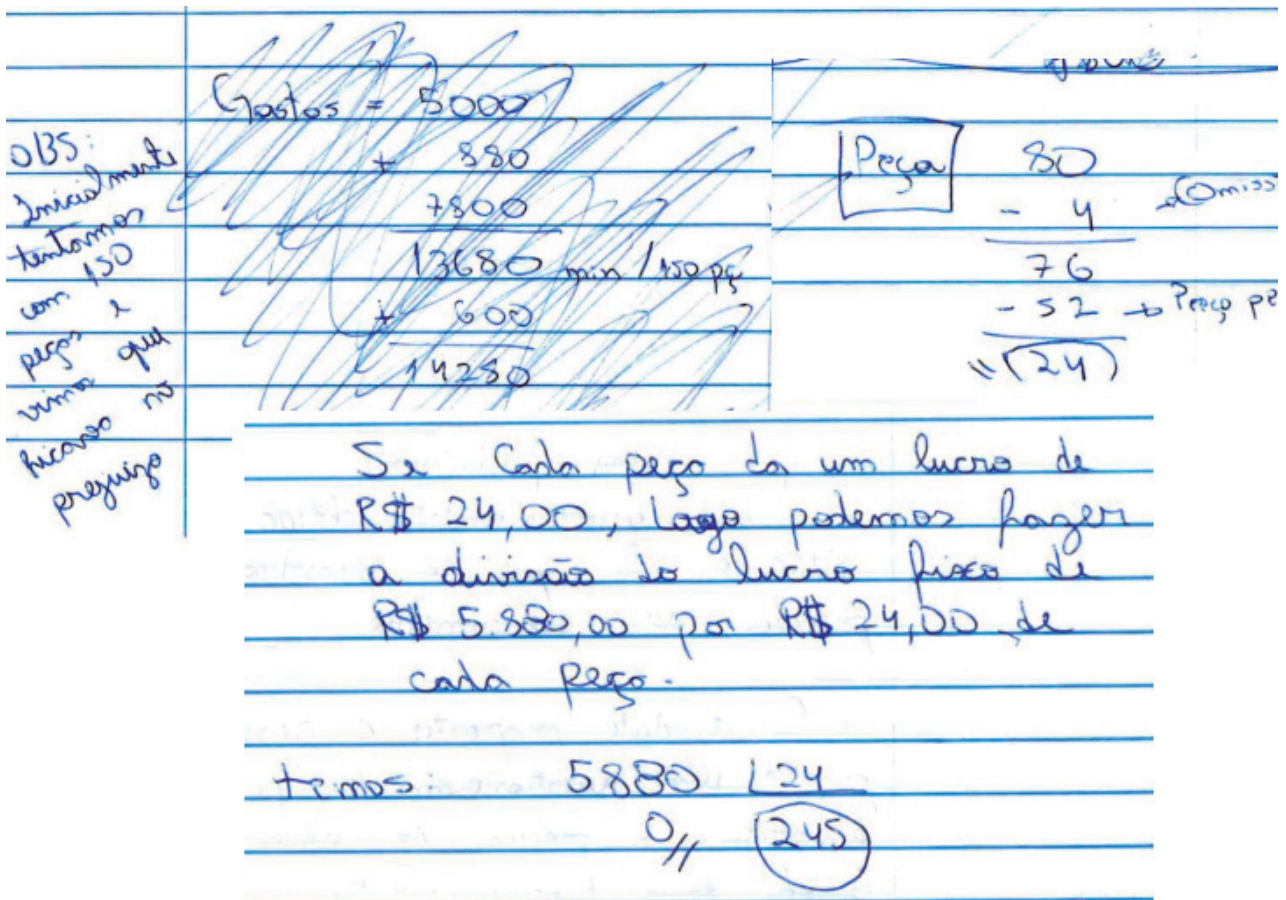 OBS:
Inicialmente
tentamos
com 150
peças e
vimos que
ficava no
prejuizo
Gastos = 5000
+ 880
7800
13680 min / 150 pç
+ 600
14280
Peça 80
- 4 → Omiss
76
- 52 → Preço pe
(24)
Se Cada peça da um lucro de
R$ 24,00, Logo podemos fazer
a divisão do lucro fixo de
R$ 5.880,00 por R$ 24,00 de
cada peça.
temos 5880 24
0 245